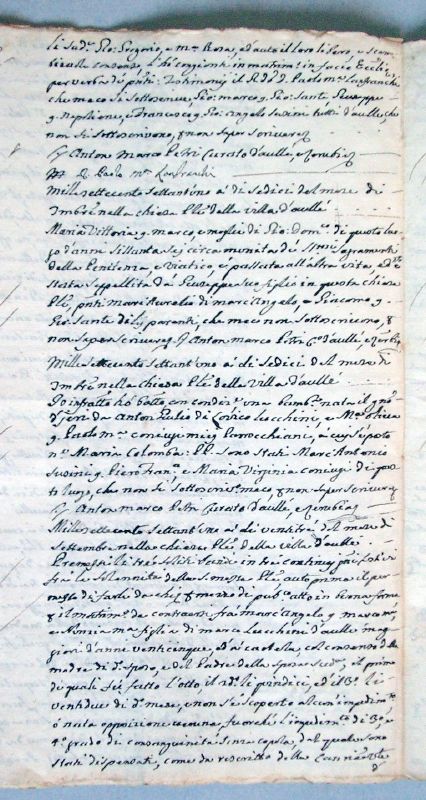 li sud.i Gio: Gregorio, e m.a Rosa, ed auto il loro libero, e scam
bievole consenso li hò congionti in matrim.o in facie Eccl.æ
per verba de pnti: Testimonj il R.do D. Paolo m.a Lanfranchi
che meco si sottoscrive, Gio: marco q. Gio: Sante, Giuseppe
q. Napolione, e Francesco q. Gio: Angelo Susini tutti d'aullè, che
non si sottoscrivono, per non saper scrivere
Io Anton Marco Petri Curato d'aullè, e
D. Paolo m.a Lanfranchi
Mille settecento settantuno a' di sedici del mese di
7mbre nella chiesa Ple della villa d'aullè
Maria Vittoria q. marco, e moglie di Gio: Dom.co di questo luo
go d'anni sessanta sej circa munita de' SSmi Sagramenti
della Penitenza, e Viatico è passata all'altra vita, ed è
stata seppellita da Giuseppe suo figlio in questa chiesa
Ple, pnti Marc'Aurelio di marc'Angelo, e Giacomo q.
Gio: Sante parenti, che meco non sottoscrivono, per
non saper scrivere, Io Anton marco Petri C.to d'aullè
Mille settecento settant'uno a' di sedici del mese di
7mbre nella chiesa Ple della villa d'aullè
Io infratto hò batto con una bamb.a nata il gno
d'jeri da Anton Giulio di Lodico Lecchini, e M.a
q. Paolo m.a coniugi miej Parrocchiani, a cuj fù posto
n.e Maria Colomba: PP. sono stati Marc'Antonio
Susini q. Piero Fran.co e Maria Virginia coniugi di questo
luogo, che non si sottoscriv.o meco, per non saper scrivere
Io Anton marco Petri Curato d'aullè, e
Mille settecento settant'uno a' di ventitrè del mese di
Settembre nella chiesa Ple della villa d'aullè
Premessi le trè solite denunzie in tre continuj giorni festivi
fra le solennità della S. messa Ple auto prima il per
messo di farle da chi per mezzo di pub.co atto in buona forma
per il matrim.o da contraersi fra marc'Angelo q.
e Annunzia m.a figlia di marco Lecchini d'aullè mag
giori d'anne venticinque, ed a cautela, col consenso della
madre di d.o sposo, e del Padre della sposa sud.a, il primo
de quali fù fatto l'otto, il 2do li quindici, ed il 3o li
ventidue di d.o mese, e non s'è scoperto alcun'impedim.to
ò nata opposizione veruna, fuorchè l'impedim.to di 3o e
4o grado di consanguinità senza copula, dal quale sono
stati dispensati, come da rescritto della Cancelleria
d